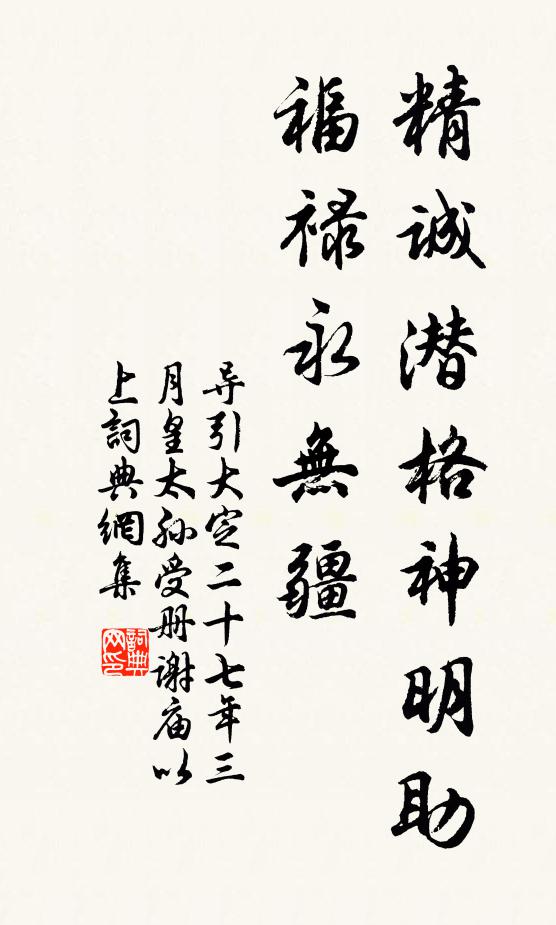 精誠潜格神明助
福禄永無疆
导引大定二十七年三
月皇太孙受册谢庙以
上詞典網集
詞典网印